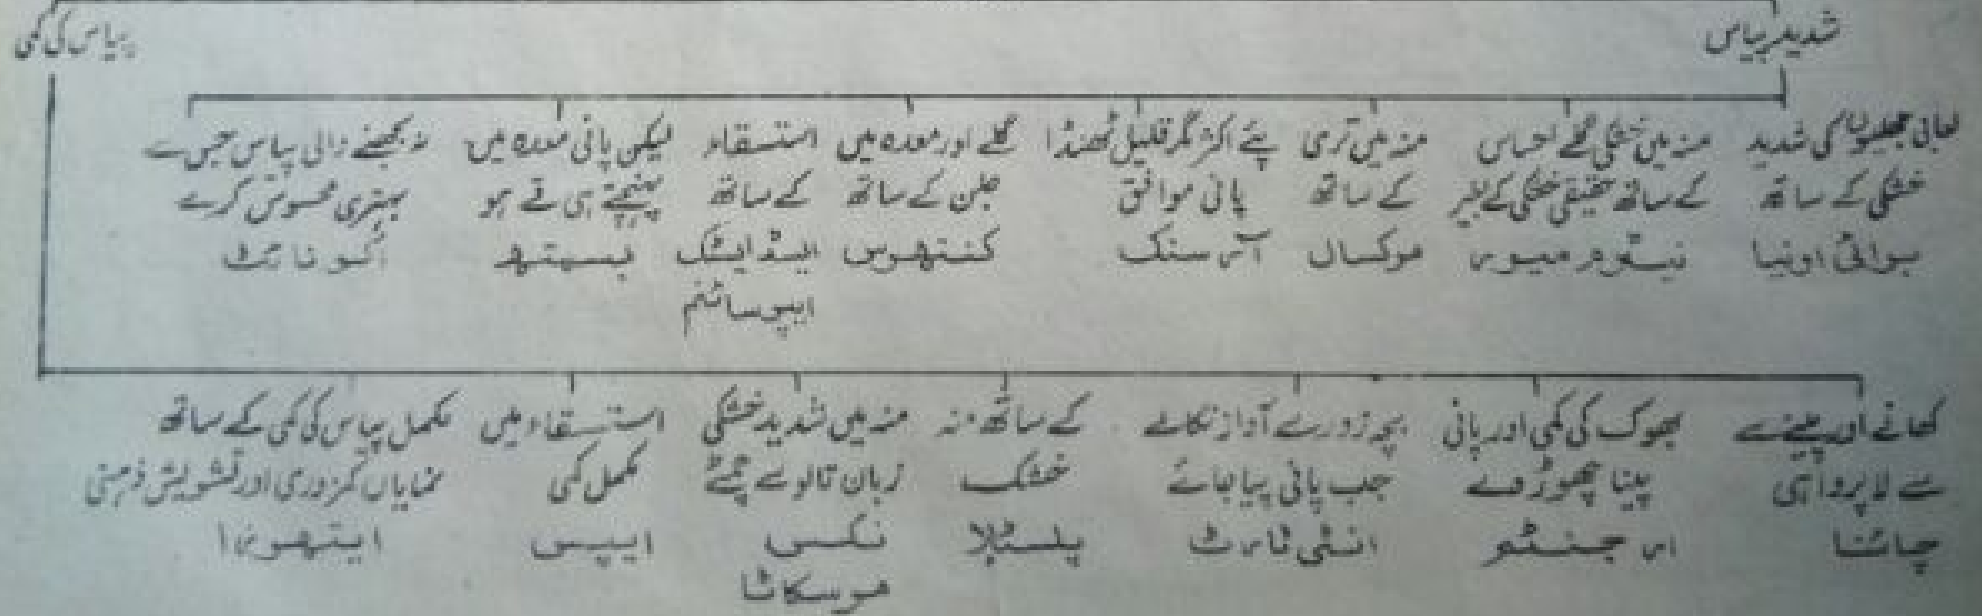 شدید پیاس
پیاس کی کمی
لعابی جھلیوں کی شدید
خشکی کے ساتھ
برائی اونیا
منہ میں خشکی کے احساس
کے ساتھ حقیقی خشکی کے بغیر
نیٹرم میور
منہ میں تری
کے ساتھ
مرکسال
پئے اکثر مگر قلیل ٹھنڈا
پانی موافق
آرسنک
گلے اور معدہ میں
جلن کے ساتھ
کنتھرس
استسقاء
کے ساتھ
ایسڈ ایسٹک
ایپوسائنم
لیکن پانی معدہ میں
پہنچتے ہی قے ہو
بسمتھ
نہ بجھنے والی پیاس جس سے
بہتری محسوس کرے
اکونائٹ
کھانے اور پینے سے
سے لا پرواہی
چائنا
بھوک کی کمی اور پانی
پینا چھوڑ دے
ارجنٹم
بچہ زور سے آواز نکالے
جب پانی پیا جائے
انٹی ٹارٹ
کے ساتھ منہ
خشک
پلسٹلا
منہ میں شدید خشکی
زبان تالو سے چمٹے
نکس
موسکاٹا
استسقاء میں
مکمل کمی
ایپس
مکمل پیاس کی کمی کے ساتھ
نمایاں کمزوری اور تشویش ذہنی
ایتھوزا